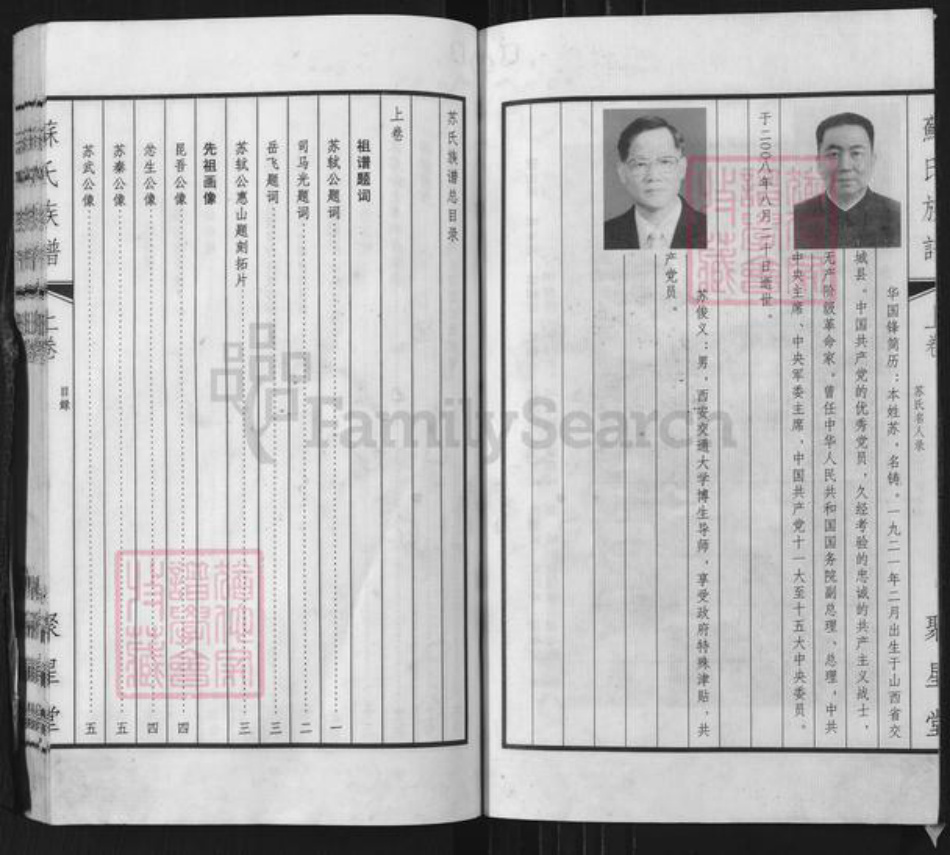 蘇氏族譜
上卷
苏氏名人录
聚星堂
华国锋简历：本姓苏，名铸。一九二一年二月出生于山西省交
城县。中国共产党的优秀党员，久经考验的忠诚的共产主义战士，
无产阶级革命家，曾任中华人民共和国国务院副总理、总理，中共
中央主席、中央军委主席，中国共产党十一大至十五大中央委员。
于二〇〇八年八月二十日逝世。
苏俊义：男，西安交通大学博生导师，享受政府特殊津贴，共
产党员。
苏氏族谱总目录
上卷
祖谱题词
苏轼公题词 一
司马光题词 二
岳飞题词 三
苏轼公惠山题刻拓片 三
先祖画像
昆吾公像 四
忿生公像 四
苏秦公像 五
苏武公像 五
蘇氏族譜
上卷
目録
聚星堂
FamilySearch